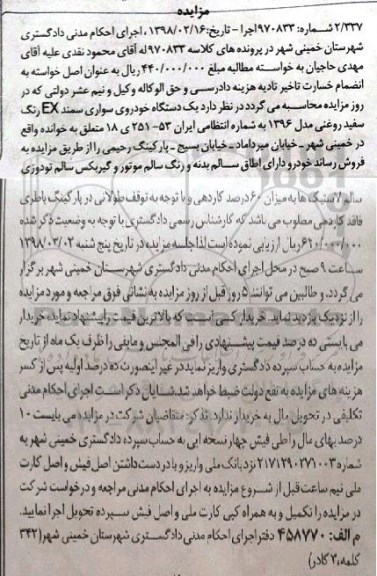 مزایده
۲/۳۳۷ شماره: ۹۷۰۸۳۳اجرا - تاریخ:۱۳۹۸/۰۲/۱۶، اجرای احکام مدنی دادگستری
شهرستان خمینی شهر در پرونده های کلاسه ۹۷۰۸۳۳ له آقای محمود نقدی علیه آقای
مهدی حاجیان به خواسته مطالبه مبلغ ۴۴۰/۰۰۰/۰۰۰ ریال به عنوان اصل خواسته به
انضمام خسارت تاخیر تادیه هزینه دادرسی و حق الوکاله وکیل و نیم عشر دولتی که در
روز مزایده محاسبه می گردد در نظر دارد یک دستگاه خودروی سواری سمند EX رنگ
سفید روغنی مدل ۱۳۹۶ به شماره انتظامی ایران ۵۳- ۲۵۱ ی ۱۸ متعلق به خوانده واقع
در خمینی شهر - خیابان میرداماد - خیابان بسیج - پارکینگ رحیمی را از طریق مزایده به
فروش رساند خودرو دارای اطاق سالم بدنه و رنگ سالم موتور و گیربکس سالم تودوزی
سالم لاستیک ها به میزان ۶۰ درصد کاردهی و با توجه به توقف طولانی در پارکینگ باطری
فاقد کاردهی مطلوب می باشد که کارشناس رسمی دادگستری با توجه به وضعیت ذکر شده
۶۲۰/۰۰۰/۰۰۰ ریال ارزیابی نموده است لذا جلسه مزایده در تاریخ پنج شنبه ۱۳۹۸/۰۳/۰۲
ساعت ۹ صبح در محل اجرای احکام مدنی دادگستری شهرستان خمینی شهر برگزار
می گردد. و طالبین می توانند ۵ روز قبل از روز مزایده به نشانی فوق مراجعه و مورد مزایده
را از نزدیک بازدید نمایند. خریدار کسی است که بالاترین قیمت را پیشنهاد نماید خریدار
می بایستی ده درصد قیمت پیشنهادی را فی المجلس و مابقی را ظرف یک ماه از تاریخ
مزایده به حساب سپرده دادگستری واریز نماید در غیر اینصورت ده درصد اولیه پس از کسر
هزینه های مزایده به نفع دولت ضبط خواهد شد.شایان ذکر است اجرای احکام مدنی
تکلیفی در تحویل مال به خریدار ندارد. تذکر: متقاضیان شرکت در مزایده می بایست ۱۰
درصد بهای مال را طی فیش چهار نسخه ایی به حساب سپرده دادگستری خمینی شهر به
شماره ۲۱۷۱۲۹۰۲۷۱۰۰۳ نزد بانک ملی واریز و با در دست داشتن اصل فیش و اصل کارت
ملی نیم ساعت قبل از شروع مزایده به اجرای احکام مدنی مراجعه و درخواست شرکت
در مزایده را تکمیل و به همراه کپی کارت ملی و اصل فیش سپرده تحویل اجرا نمایید.
م الف: ۴۵۸۷۷۰ دفتر اجرای احکام مدنی دادگستری شهرستان خمینی شهر(۳۴۲
کلمه، ۳ کادر)